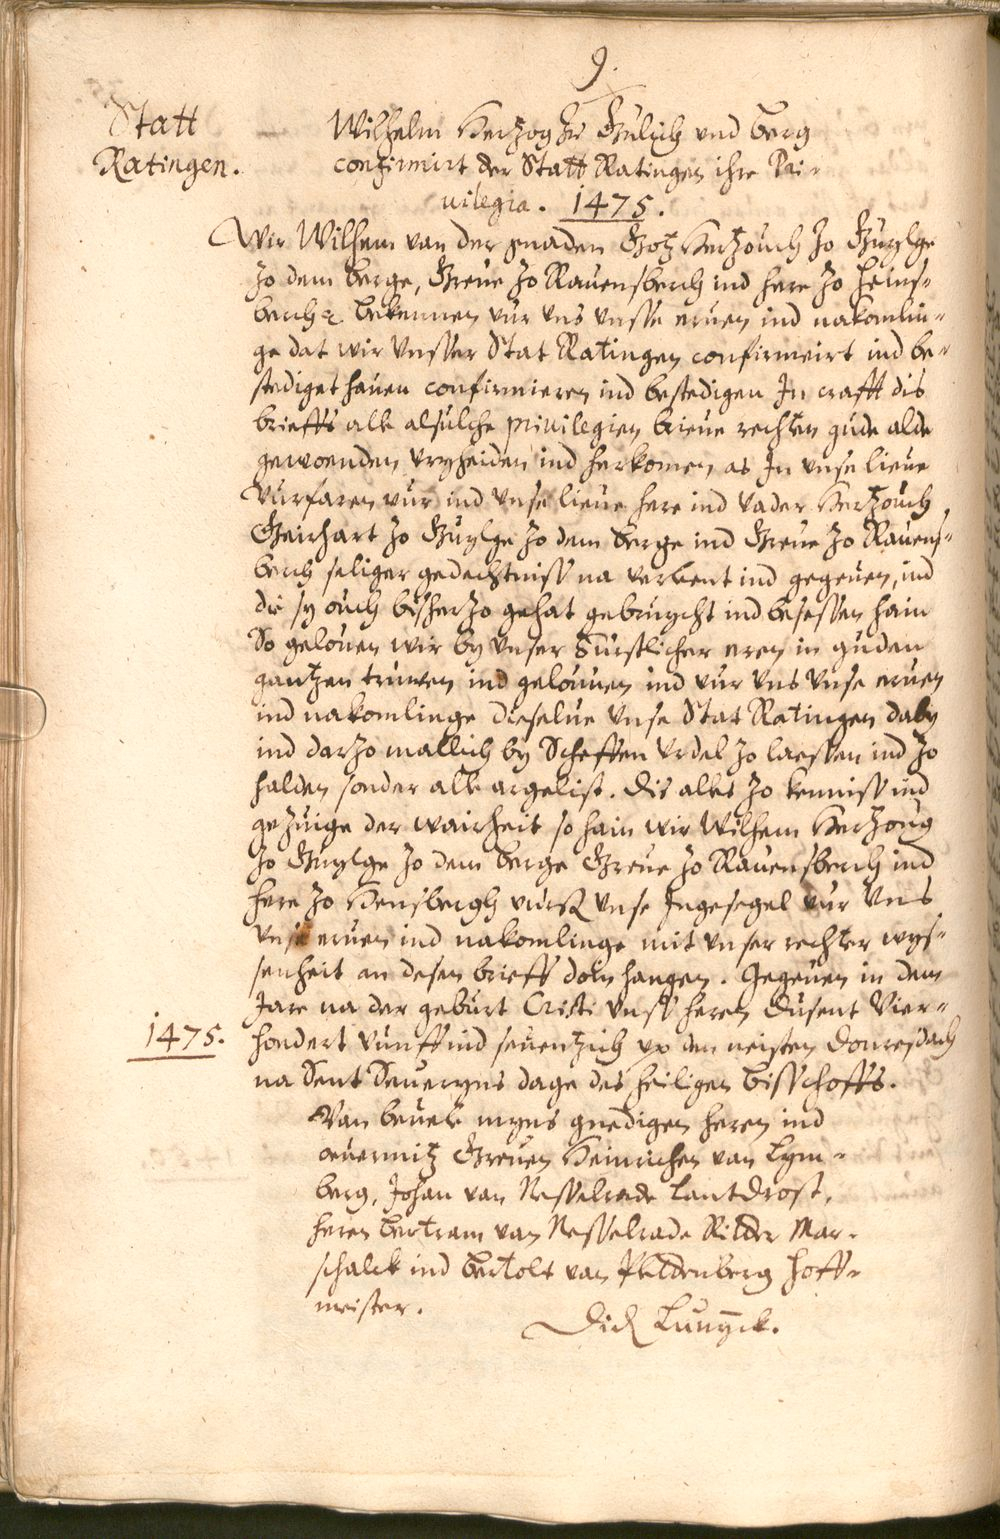 9.
Statt
Ratingen.
Wilhelm Hertzog zu Gulich vnd Berg
confirmirt der Statt Ratingen ihre Pri-
uilegia. 1475.
Wir Wilhem van der gnaden Gotz Hertzouch zo Guylge
zo dem Berge, Greue zo Rauensberch ind here zo Heins-
berch &c. bekennen vur vns vnsse eruen ind nakomlin-
ge dat wir vnsser Stat Ratingen confirmeirt ind be-
stediget hauen confirmieren ind bestedigen In crafft dis
brieffs alle alsulche priuilegien brieue rechten gude alde
gewoenden vryheiden ind herkomen, as In vnse lieue
Vurfaren vur ind vnse lieue here ind Vader Hertzouch
Geirhart zo Guylge zo dem Berge ind Greue zo Rauens-
berch seliger gedechtniss na verlient ind gegeuen, ind
die sy ouch bisherzo gehat gebruycht ind besessen hain
So gelouen wir by vnser Furstlicher eren in guden
gantzen truwen ind gelouuen ind vur vns vnse eruen
ind nakomlinge dieselue vnse Stat Ratingen daby
ind darzo mallich by Scheffen Urdel zo laessen ind zo
halden sonder alle argelist. Dis alles zo kenniss ind
gezuige der wairheit so hain wir Wilhem Hertzoug
zo Guylge zo dem Berge Greue zo Rauensberch ind
here zo Hensbergh vurss vnse Ingesegel vur Vns
vnse eruen ind nakomlinge mit vnser rechter wys-
senheit an desen brieff doin hangen. Gegeuen in dem
Jare na der geburt Cristi vnss heren Dusent Vier-
1475.
hondert vunff ind seuentzich vp den neisten Donresdach
na Sent Seueryns dage des heiligen Bisschoffs.
Van beuele myns gnedigen heren ind
ouermitz Greuen Heinrichen van Lym-
berg, Johan van Nesselrade Lantdrost,
heren Bertram van Nesselrade Ridder Mar-
schalck ind Bertolt van Plettenberg Hoff-
meister.
Died Lunynck.